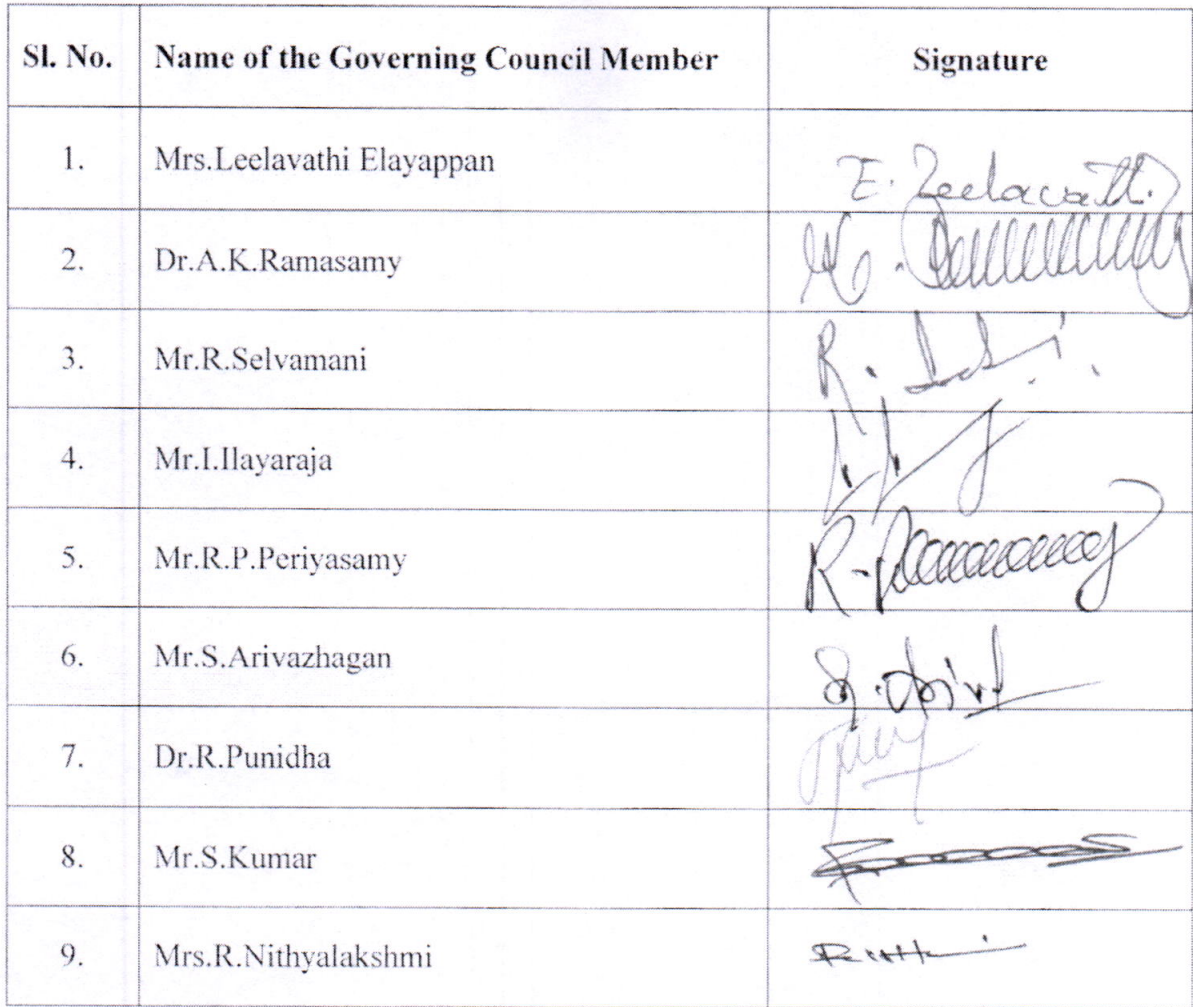 Sl. No. Name of the Governing Council Member Signature
1. Mrs.Leelavathi Elayappan E. Leelavathi.
2. Dr.A.K.Ramasamy
3. Mr.R.Selvamani R.
4. Mr.I.Ilayaraja
5. Mr.R.P.Periyasamy
6. Mr.S.Arivazhagan
7. Dr.R.Punidha
8. Mr.S.Kumar
9. Mrs.R.Nithyalakshmi